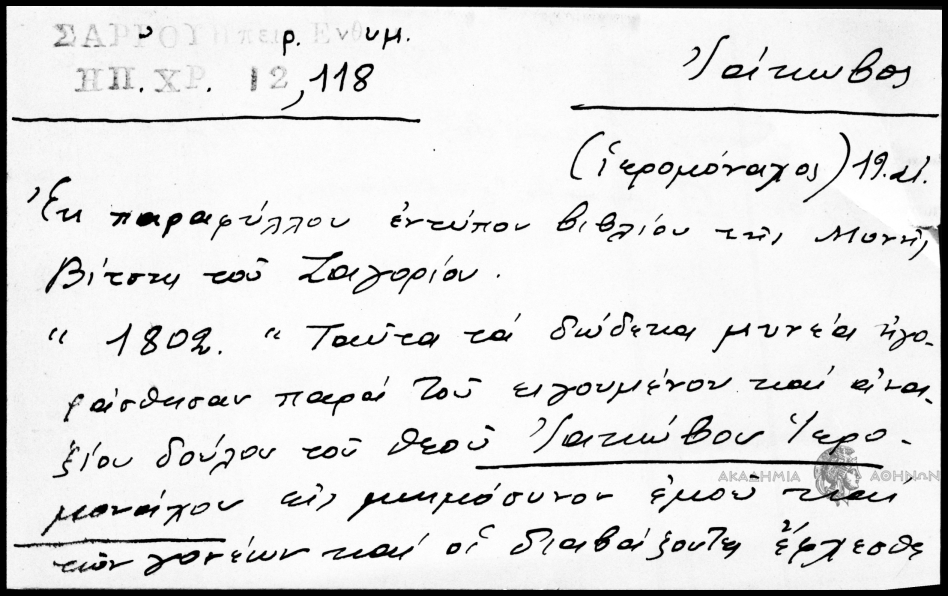 ΣΑΡΡΟΥ Ηπειρ. Ενθυμ.
ΗΠ. ΧΡ. 12, 118
Ἰάκωβος
(ἱερομόναχος) 19. αἰ.
Ἐκ παραφύλλου ἐντύπου βιβλίου τῆς Μονῆς
Βίτσης τοῦ Ζαγορίου.
“ 1802. “ Ταῦτα τά δώδεκα μυνέα ἠγο-
ράσθησαν παρά τοῦ ειγουμένου καί ἀνα-
ξίου δούλου τοῦ θεοῦ Ἰακώβου Ἱερο-
μονάχου εἰς μνημόσυνον ἐμοῦ καί
τῶν γονέων καί οἱ διαβάζοντες ἔρχεσθε
ΑΚΑΔΗΜΙΑ ΑΘΗΝΩΝ